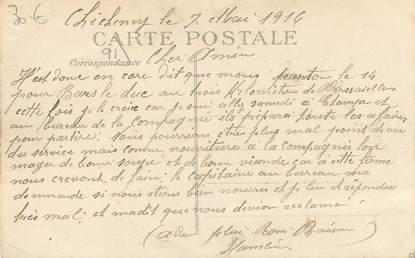 30 €
Chichenny le 7 Mai 1916
CARTE POSTALE
91
Correspondance
Cher Amin
H'est donc en care dit que nous parton le 14
pour Bars le duc au trois Kilomètre de
cette fois je le croire car je sui aller samedi à l'Etampe et
au bureau de la Compagnie ils prépare toute les affaires
pour partire. Nous pourrions être plus mal point de vu
du service mais comme nourriture a la compagnis l'on
mager de bonne soupe et de bonne viande car à cette ferme
nous crevont de faim, le capitaine au bureau ma
demmande si nous étions bien nourrie et je lui et répondu
très mal; et ma dit que nous devion réclamé
plus Bon Baiser